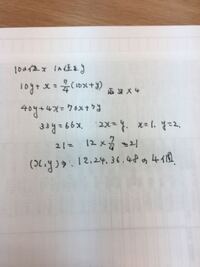 10の位x 1の位をy
10y + x = 7/4 (10x+y) 両辺×4
40y+4x = 70x+7y
33y = 66x. 2x = y. x=1, y=2.
21 = 12 × 7/4 = 21
(x,y)は. 12,24,36,48の4個